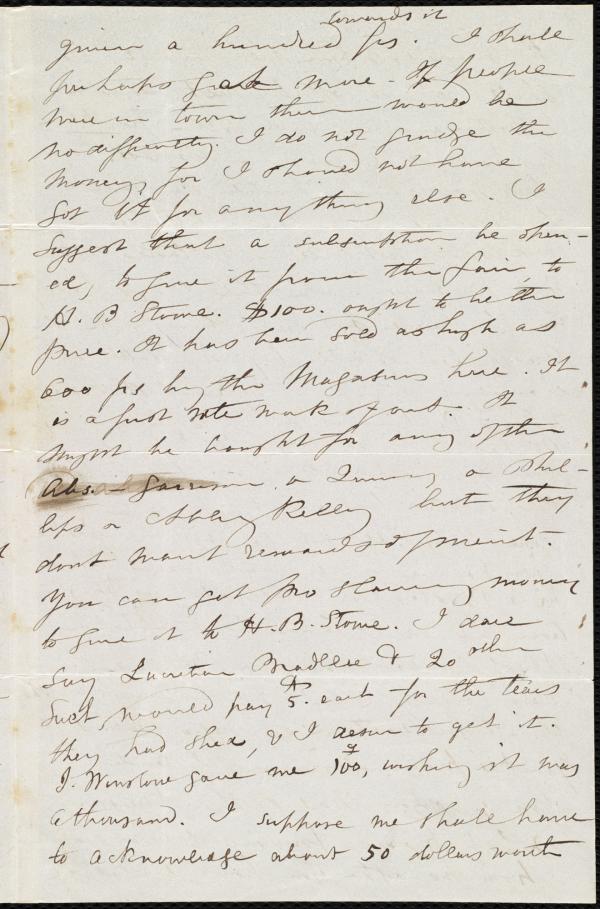 towards it
given a hundred frs. I shall
perhaps get more - If people
were in town there would be
no difficulty. I do not grudge the
money, for I should not have
got it for any thing else. I
suggest that a subscription be open-
ed, to give it from the fair, to
H. B Stowe. $100. ought to be the
price. It has been sold as high as
600 frs by the Magasins here. It
is a first rate work of art. It
might be bought for any of the
Abs. - Garrison or Quincy or Phil-
lips or Abby Kelley but they
dont want rewards of merit.
You can get pro slavery money
to give it to H. B. Stowe. I dare
say Lucretia & 20 other
such, would pay $5. each for the tears
they had shed, & I desire to get it.
J. Winslow gave me 100, wishing it was
a thousand. I suppose we shall have
to acknowledge about 50 dollars worth